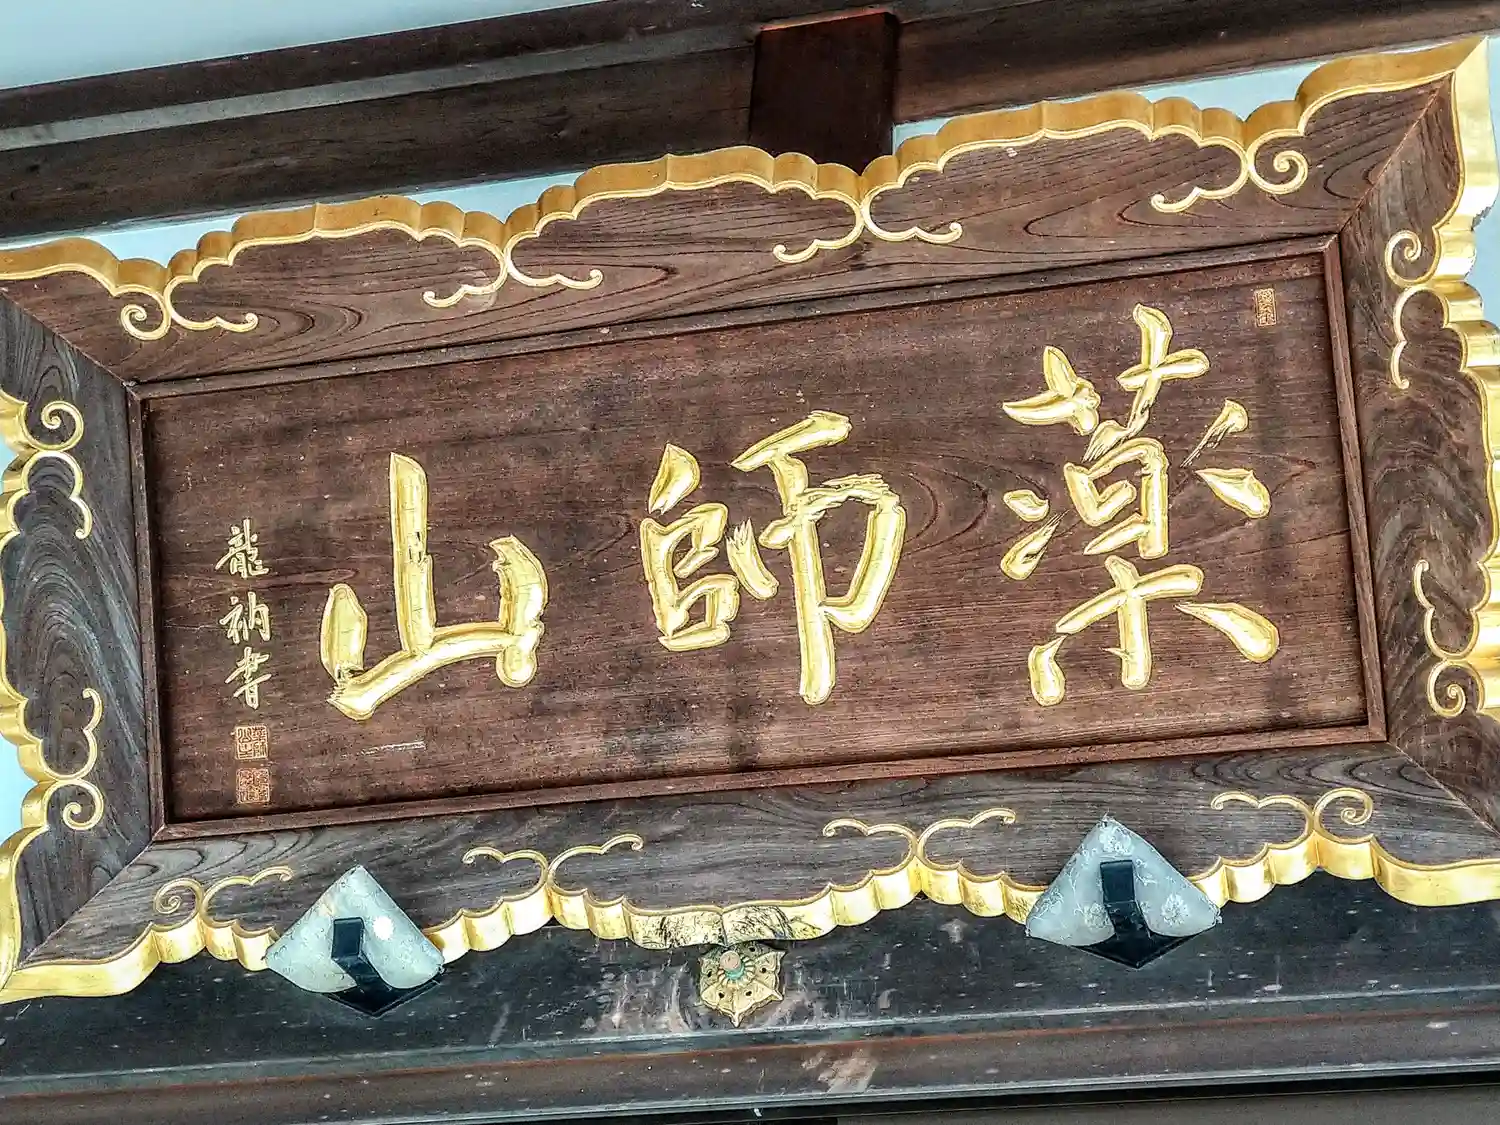 薬師山
龍衲書